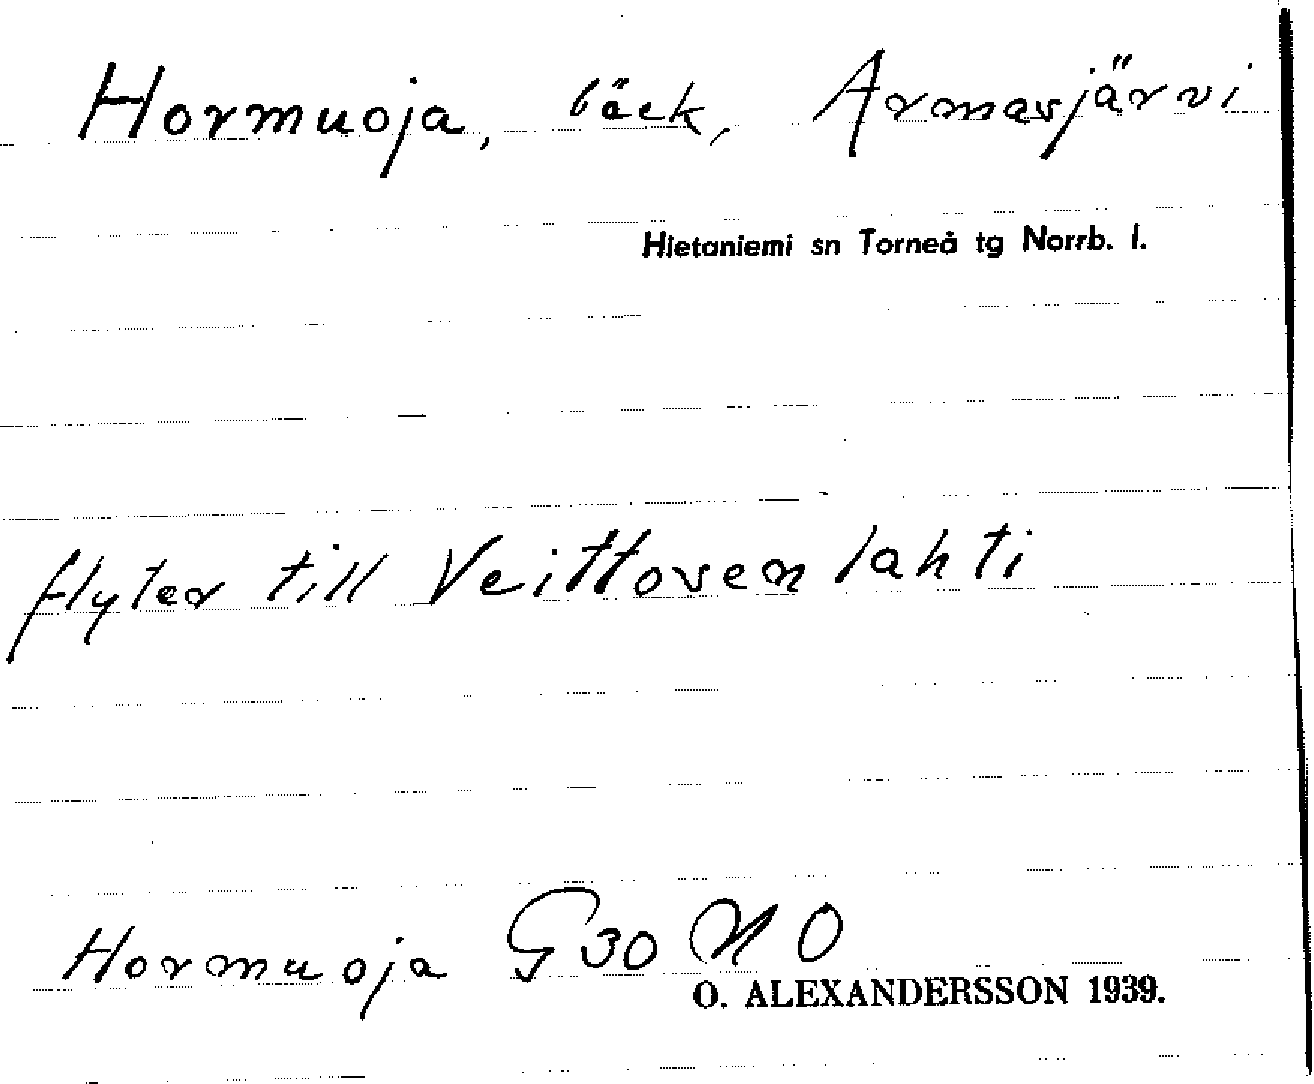 Hormuoja, bäck, Armasjärvi
Hietaniemi sn Torneå tg Norrb. l.
flyter till Veittovenlahti
Hormuoja G 30 N O
O. ALEXANDERSSON 1939.